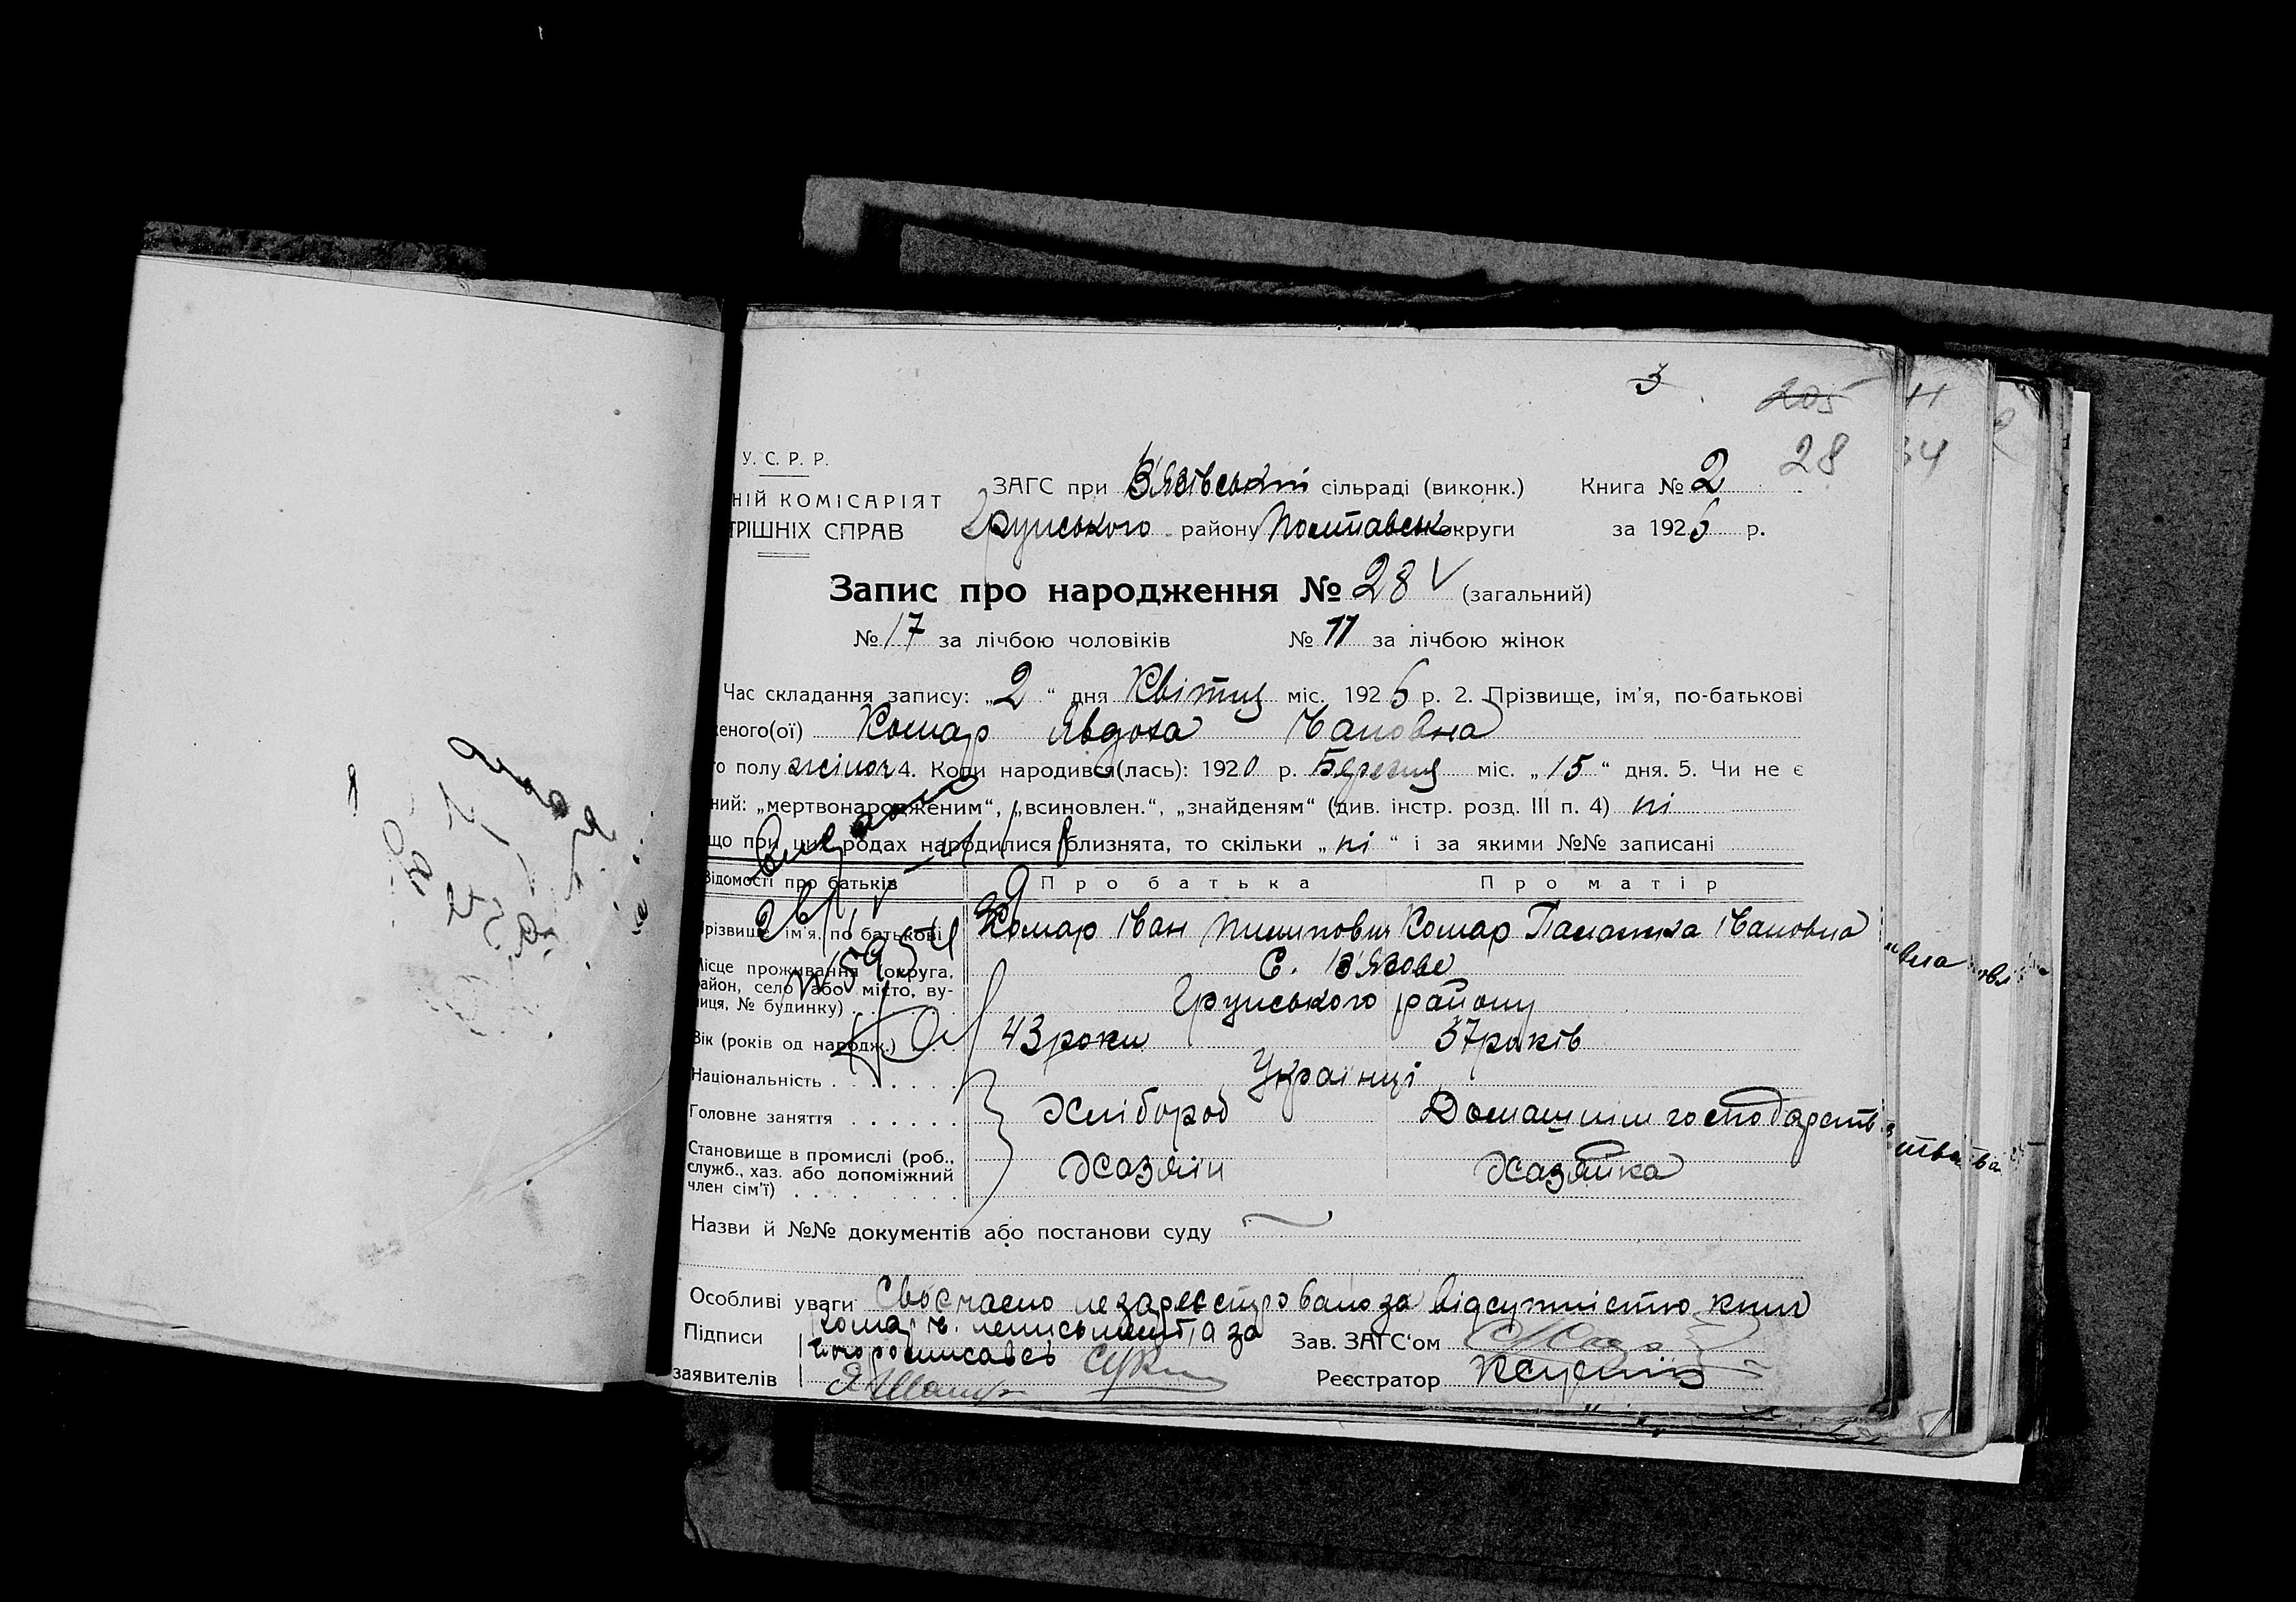 3
205
28
У. С. Р. Р.
НІЙ КОМІСАРІЯТ
ТРІШНІХ СПРАВ
ЗАГС при В'язівській сільраді (виконк.) Книга № 2
Грунського району Полтавськ округи за 1926 р.
Запис про народження № 28 V (загальний)
№ 17 за лічбою чоловіків № 11 за лічбою жінок
Час складання запису: „2“ дня Квітня міс. 1926 р. 2. Прізвище, ім'я, по-батькові
еного(ої) Комар Явдоха Івановна
го полу жіноч 4. Коли народився(лась): 1920 р. Березня міс. „15“ дня. 5. Чи не є
ний: „мертвонародженим“, „всиновлен.“, „знайденям“ (див. інстр. розд. III п. 4) ні
що при цих родах народилися близнята, то скільки „ні“ і за якими №№ записані
Відомості про батьків Про батька Про матір
Прізвище, ім'я, по батькові Комар Іван Пилипович Комар Палажка Івановна
Місце проживання (округа, район, село або місто, вулиця, № будинку) С. В'язове
Грунського району
Вік (років од народж.) 43 роки 37 років
Національність Українці
Головне заняття Хлібороб Домашнім господарств
Становище в промислі (роб., служб., хаз. або допоміжний член сім'ї) Хазяїн Хазяйка
Назви й №№ документів або постанови суду
Особливі уваги Своєчасно незареєстровано за відсутністю книг
Підписи Комар І. неписьменний, а за
його росписавсь
заявителів
Зав. ЗАГС'ом
Реєстратор